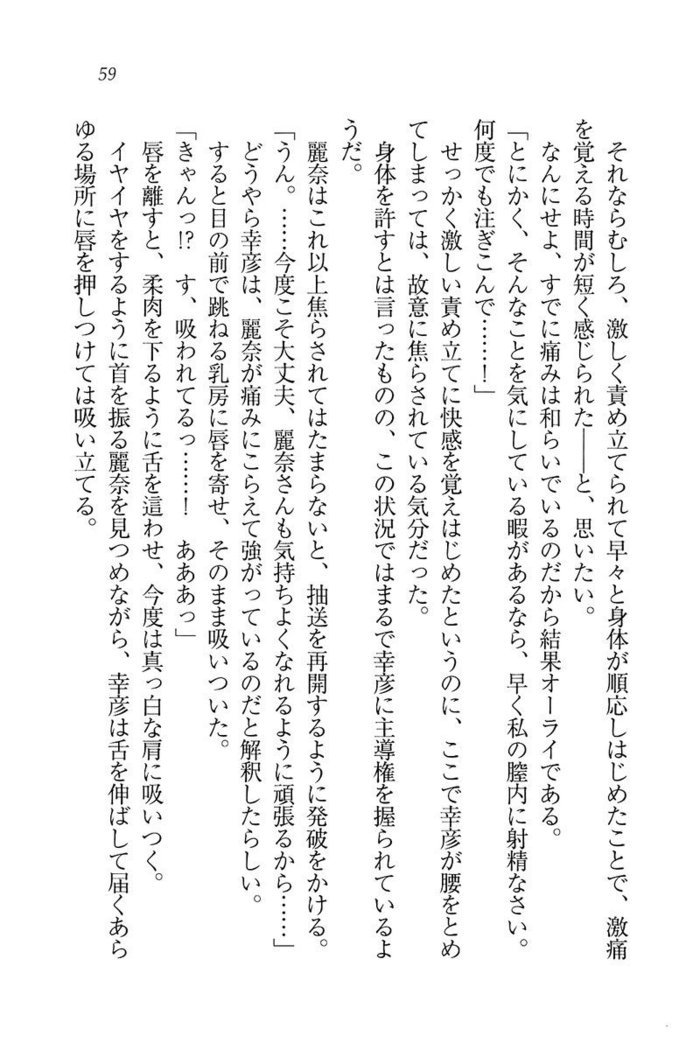 59
それならむしろ、激しく責め立てられて早々と身体が順応しはじめたことで、激痛
を覚える時間が短く感じられた――と、思いたい。
なんにせよ、すでに痛みは和らいでいるのだから結果オーライである。
「とにかく、そんなことを気にしている暇があるなら、早く私の膣内に射精なさい。
何度でも注ぎこんで……！」
せっかく激しい責め立てに快感を覚えはじめたというのに、ここで幸彦が腰をとめ
てしまっては、故意に焦らされている気分だった。
身体を許すとは言ったものの、この状況ではまるで幸彦に主導権を握られているよ
うだ。
麗奈はこれ以上焦らされてはたまらないと、抽送を再開するように発破をかける。
「うん。……今度こそ大丈夫、麗奈さんも気持ちよくなれるように頑張るから……」
どうやら幸彦は、麗奈が痛みにこらえて強がっているのだと解釈したらしい。
すると目の前で跳ねる乳房に唇を寄せ、そのまま吸いついた。
「きゃんっ!?　す、吸われてるっ……！　あああっ」
唇を離すと、柔肉を下るように舌を這わせ、今度は真っ白な肩に吸いつく。
イヤイヤをするように首を振る麗奈を見つめながら、幸彦は舌を伸ばして届くあら
ゆる場所に唇を押しつけては吸い立てる。